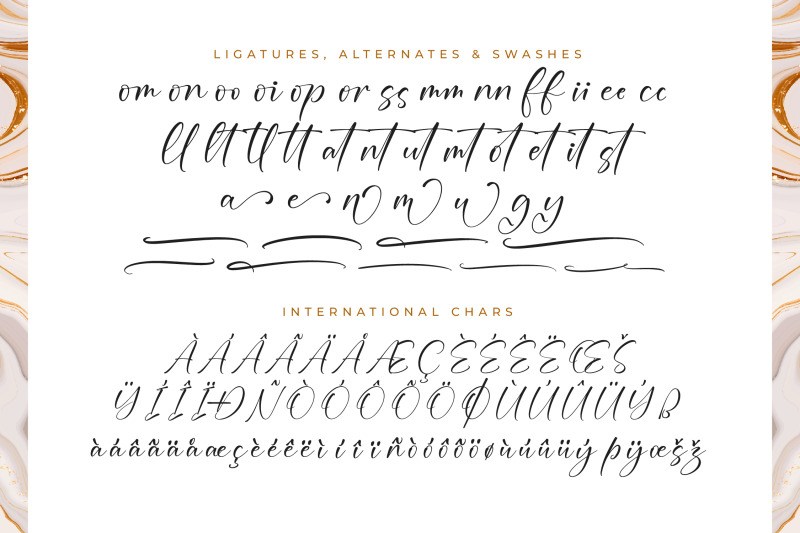 LIGATURES, ALTERNATES & SWASHES
om on oo oi op or ss mm nn ff ii ee cc
ll lt tl tt at nt ut mt ot et it st
a e n m u g y
INTERNATIONAL CHARS
ÀÁÂÃÄÅÆÇÈÉÊËŒŠ
ŸÍÎÏÐÑÒÓÔÕÖØÙÚÛÜÝß
àáâãäåæçèéêëìíîïñòóôõöøùúûüýþÿœšž